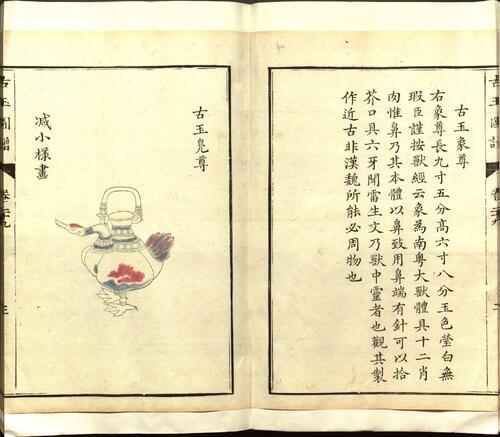 古玉象尊
右象尊長九寸五分髙六寸八分玉色瑩白無
瑕臣謹按獸經云象為南粤大獸體具十二肖
肉惟鼻乃其本體以鼻致用鼻端有針可以拾
芥口具六牙聞雷生文乃獸中靈者也觀其製
作近古非漢魏所能必周物也
古玉鳬尊
减小樣畫
古玉圖譜
三